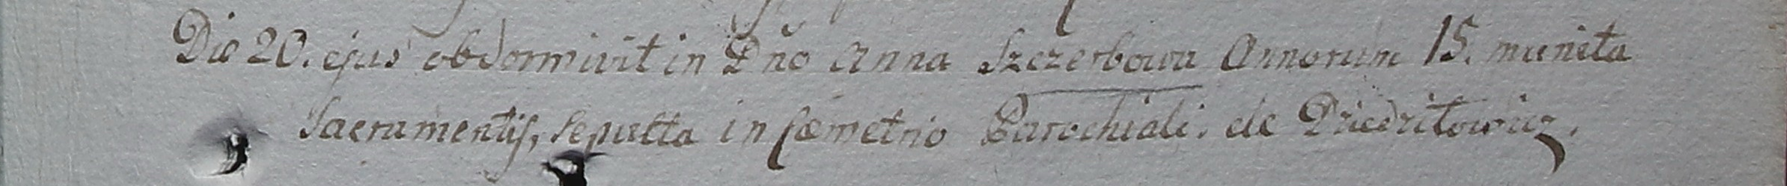 Die 20. ejus obdormivit in Dño Anna Szczerbowa Annorum 15. munita
Sacramentis, Sepulta in Cœmetrio Parochiali. de Dziedziłowicz.